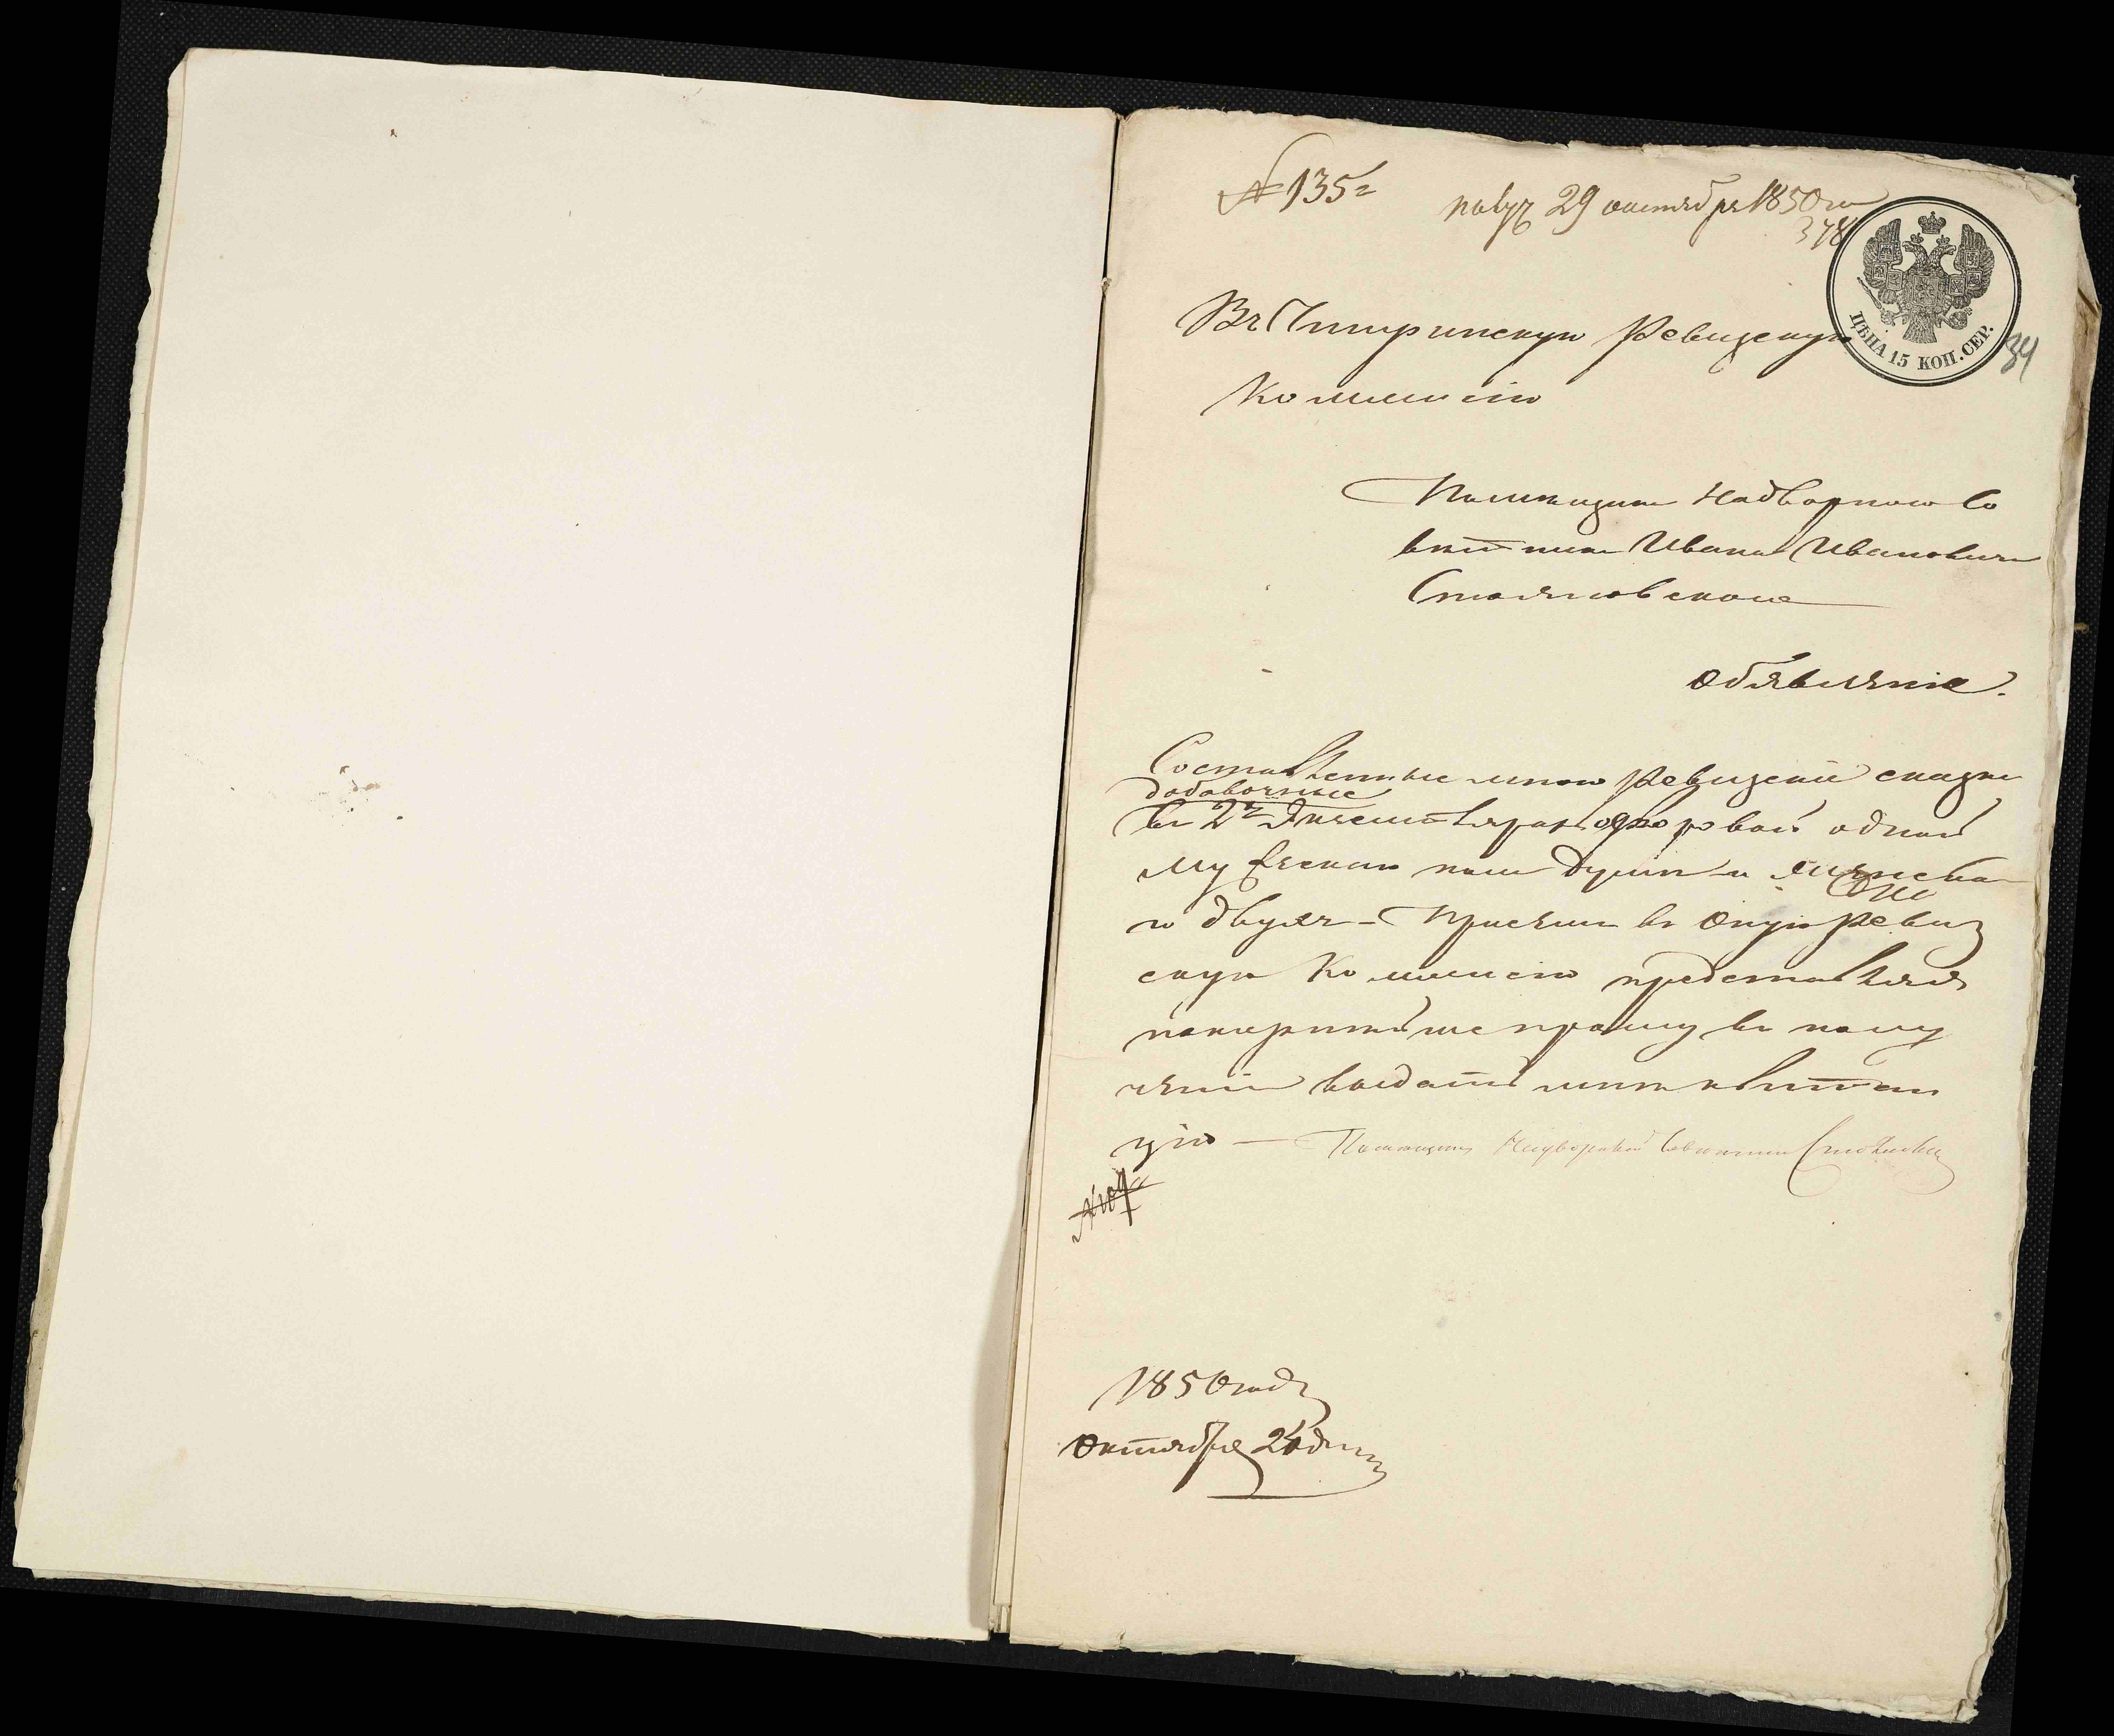 № 135
получ 29 октября 1850 го
378
ЦѢНА 15 КОП. СЕР.
34
Въ Чигиринскую Ревизскую
Коммисію
Помѣщика Надворного Со
вѣтника Ивана Ивановича
Стояновского
Объявленіе.
Составленные мною Ревизскіе сказки
добавочные
въ 2хъ Экземплярахъ о дворовой одной
мужескаго пола души и женска
го двухъ – при семъ въ оную Ревиз
скую Коммисію представляя
покорнѣйше прошу въ полу
ченіи выдать мнѣ квитан
цію — Помѣщикъ Надворный Совѣтникъ Стояновскій
1850 года
Октября 24 дня